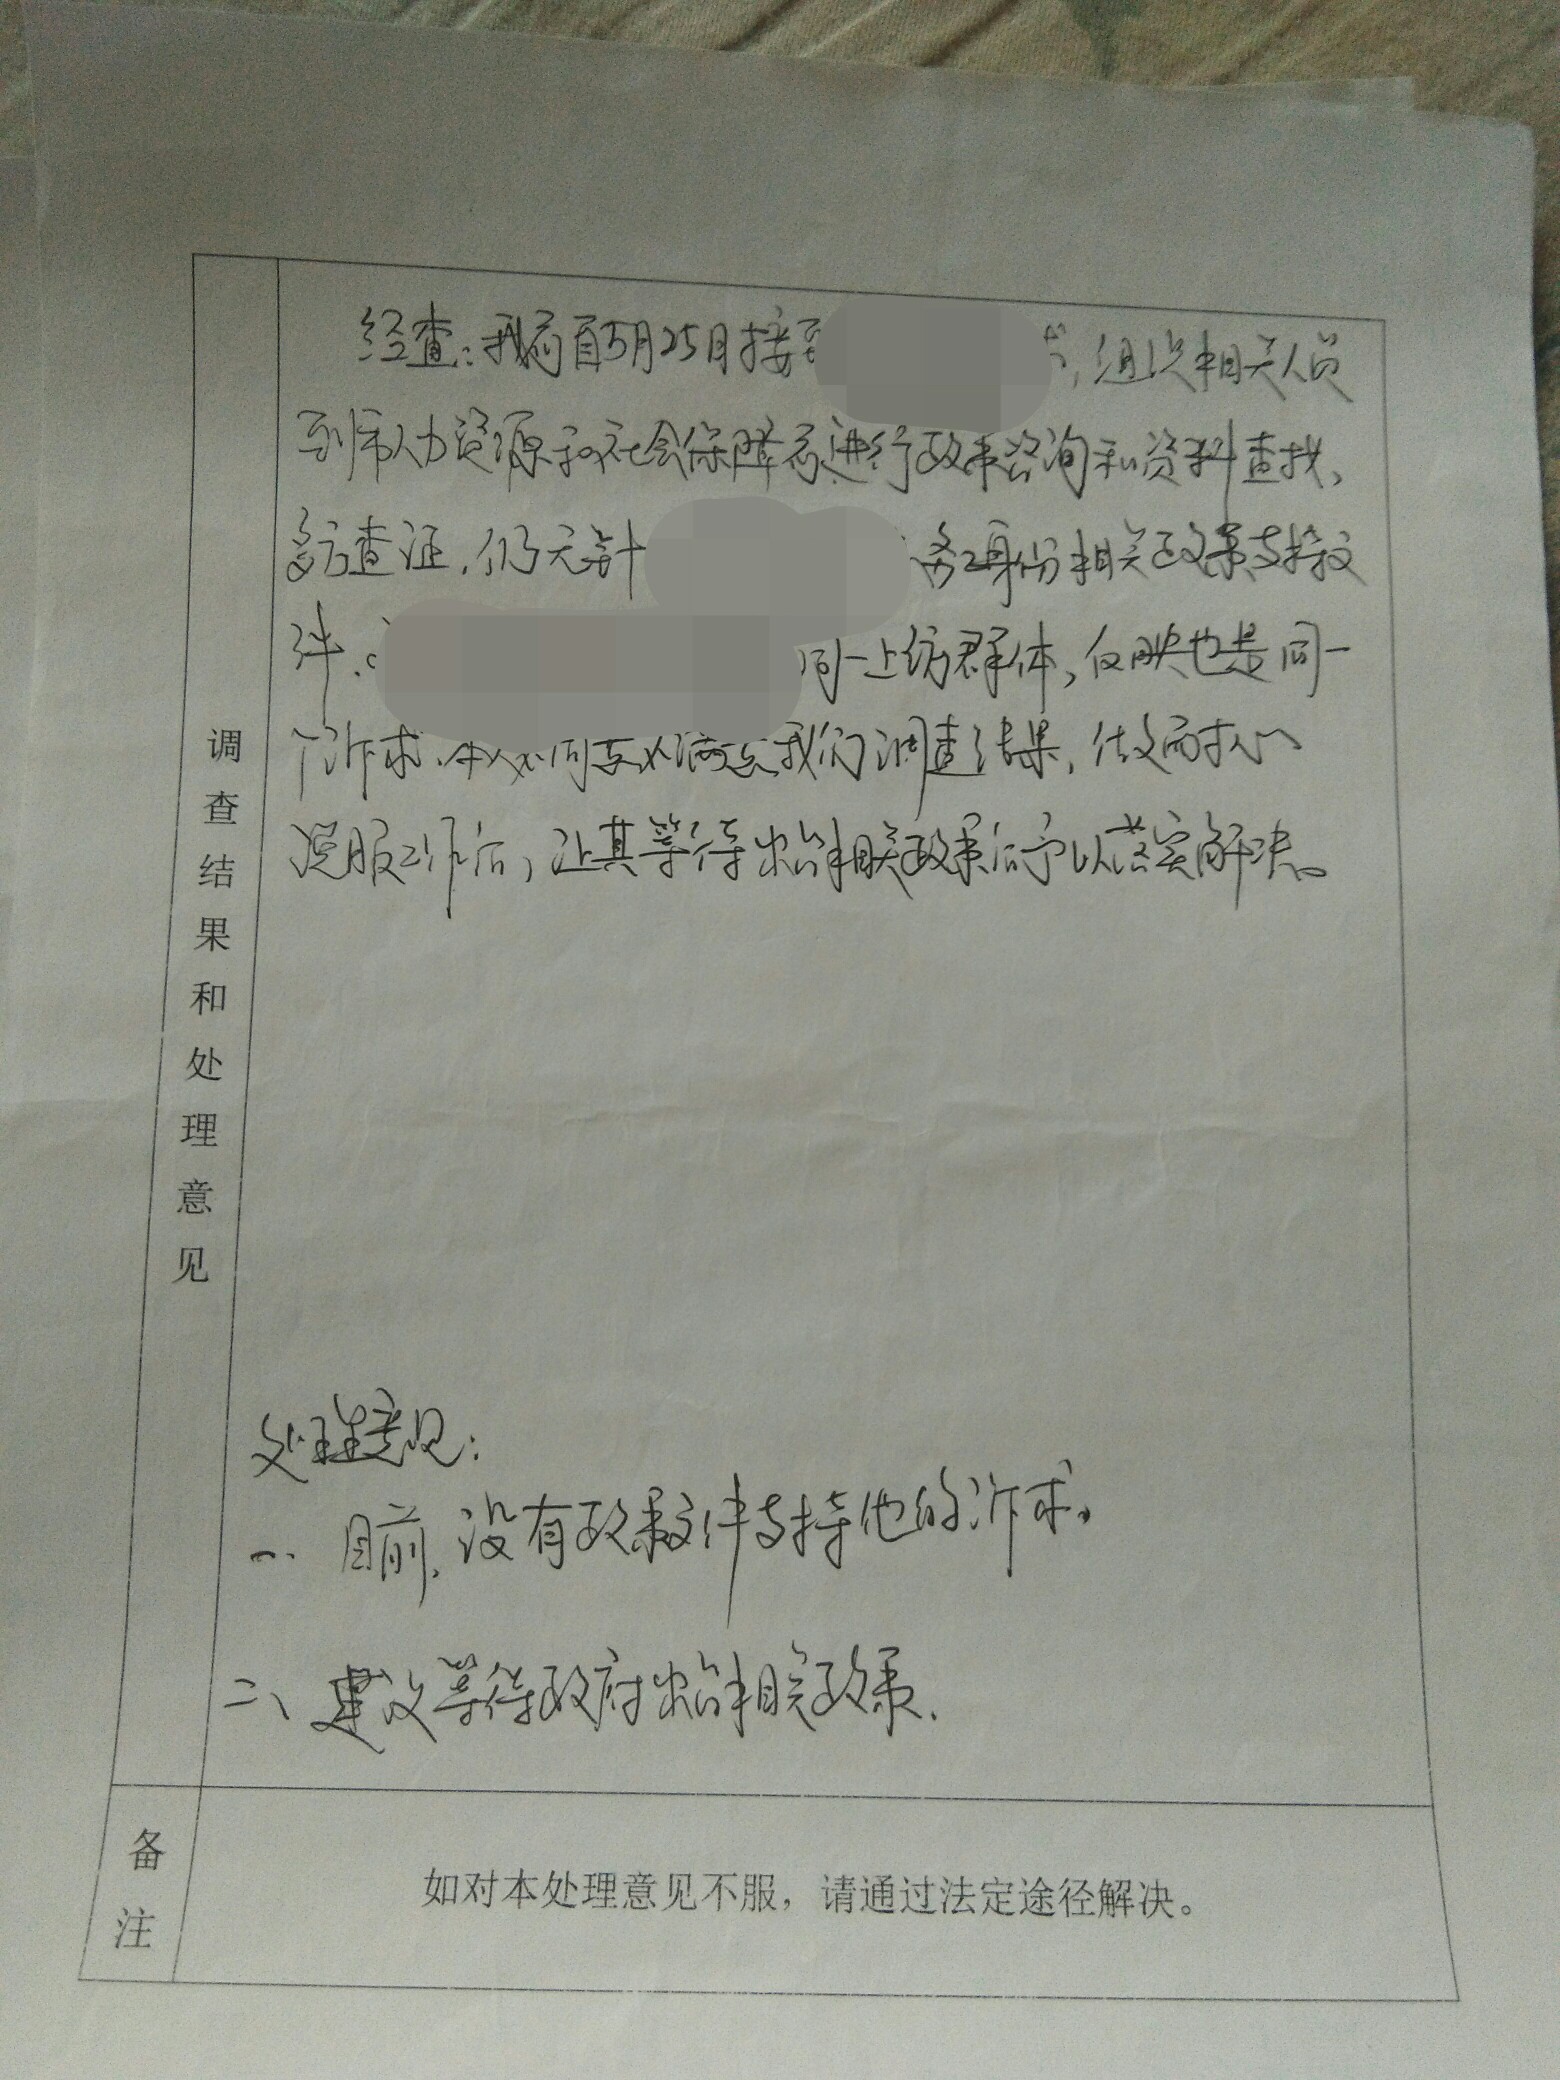 经查:我局自5月25日接到
,组织相关人员
到市人力资源和社会保障局进行政策咨询和资料查找、
多方查证,仍无针
务工身份相关政策支持文
件.
同一上访群体,反映也是同一
个诉求.
我们调查结果,做耐心
说服工作后,让其等待出台相关政策后予以落实解决。
调查结果和处理意见
处理意见:
一、目前,没有政策文件支持他的诉求。
二、建议等待政府出台相关政策.
备注
如对本处理意见不服,请通过法定途径解决。